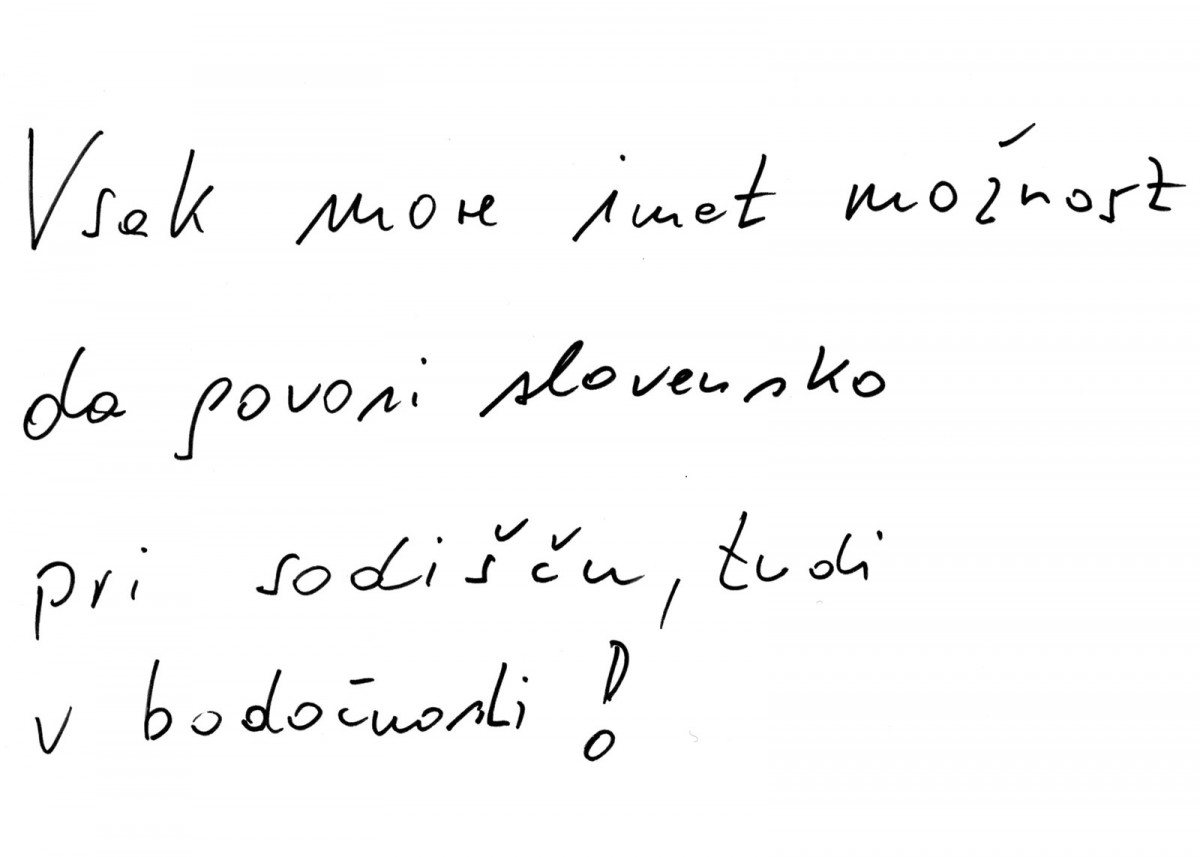 Vsak more imet možnost
da povori slovensko
pri sodišču, tudi
v bodočnosti!